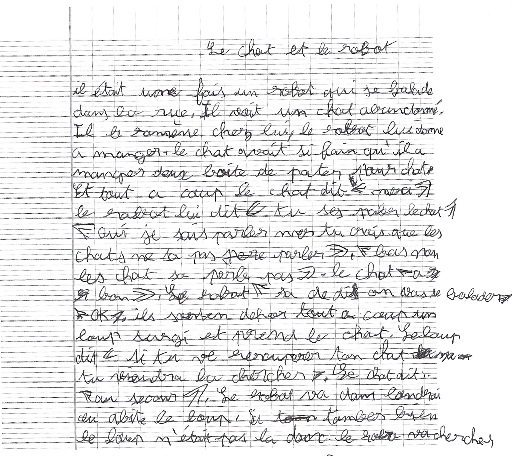 Le chat et le robot
il était une fois un robot qui se balade
dans la rue, Il voit un chat abandonné.
Il le ramène chez lui, le robot lui donne
a manger. le chat avait si faim qu'il a
manger deux boite de pater pour chats
Et tout a coup le chat dit « merci »
le robot lui dit « tu ses parler le chat »
« Oui je sais parler mer tu crois que les
chats ne sa pas parler », « bas non
les chat sa parle pas » le chat
bon », Le robot dit on vas se balader »
« OK », ils sorten dehor tout a coup un
loup surgi et prend le chat, Le loup
dit « si tu ve recuperer ton chat
tu viendra la chercher », Le chat dit
« au secour », Le robot va dans l'endroi
ou abite le loup, tombes bien
le loup n'était pas la donc le robot va chercher